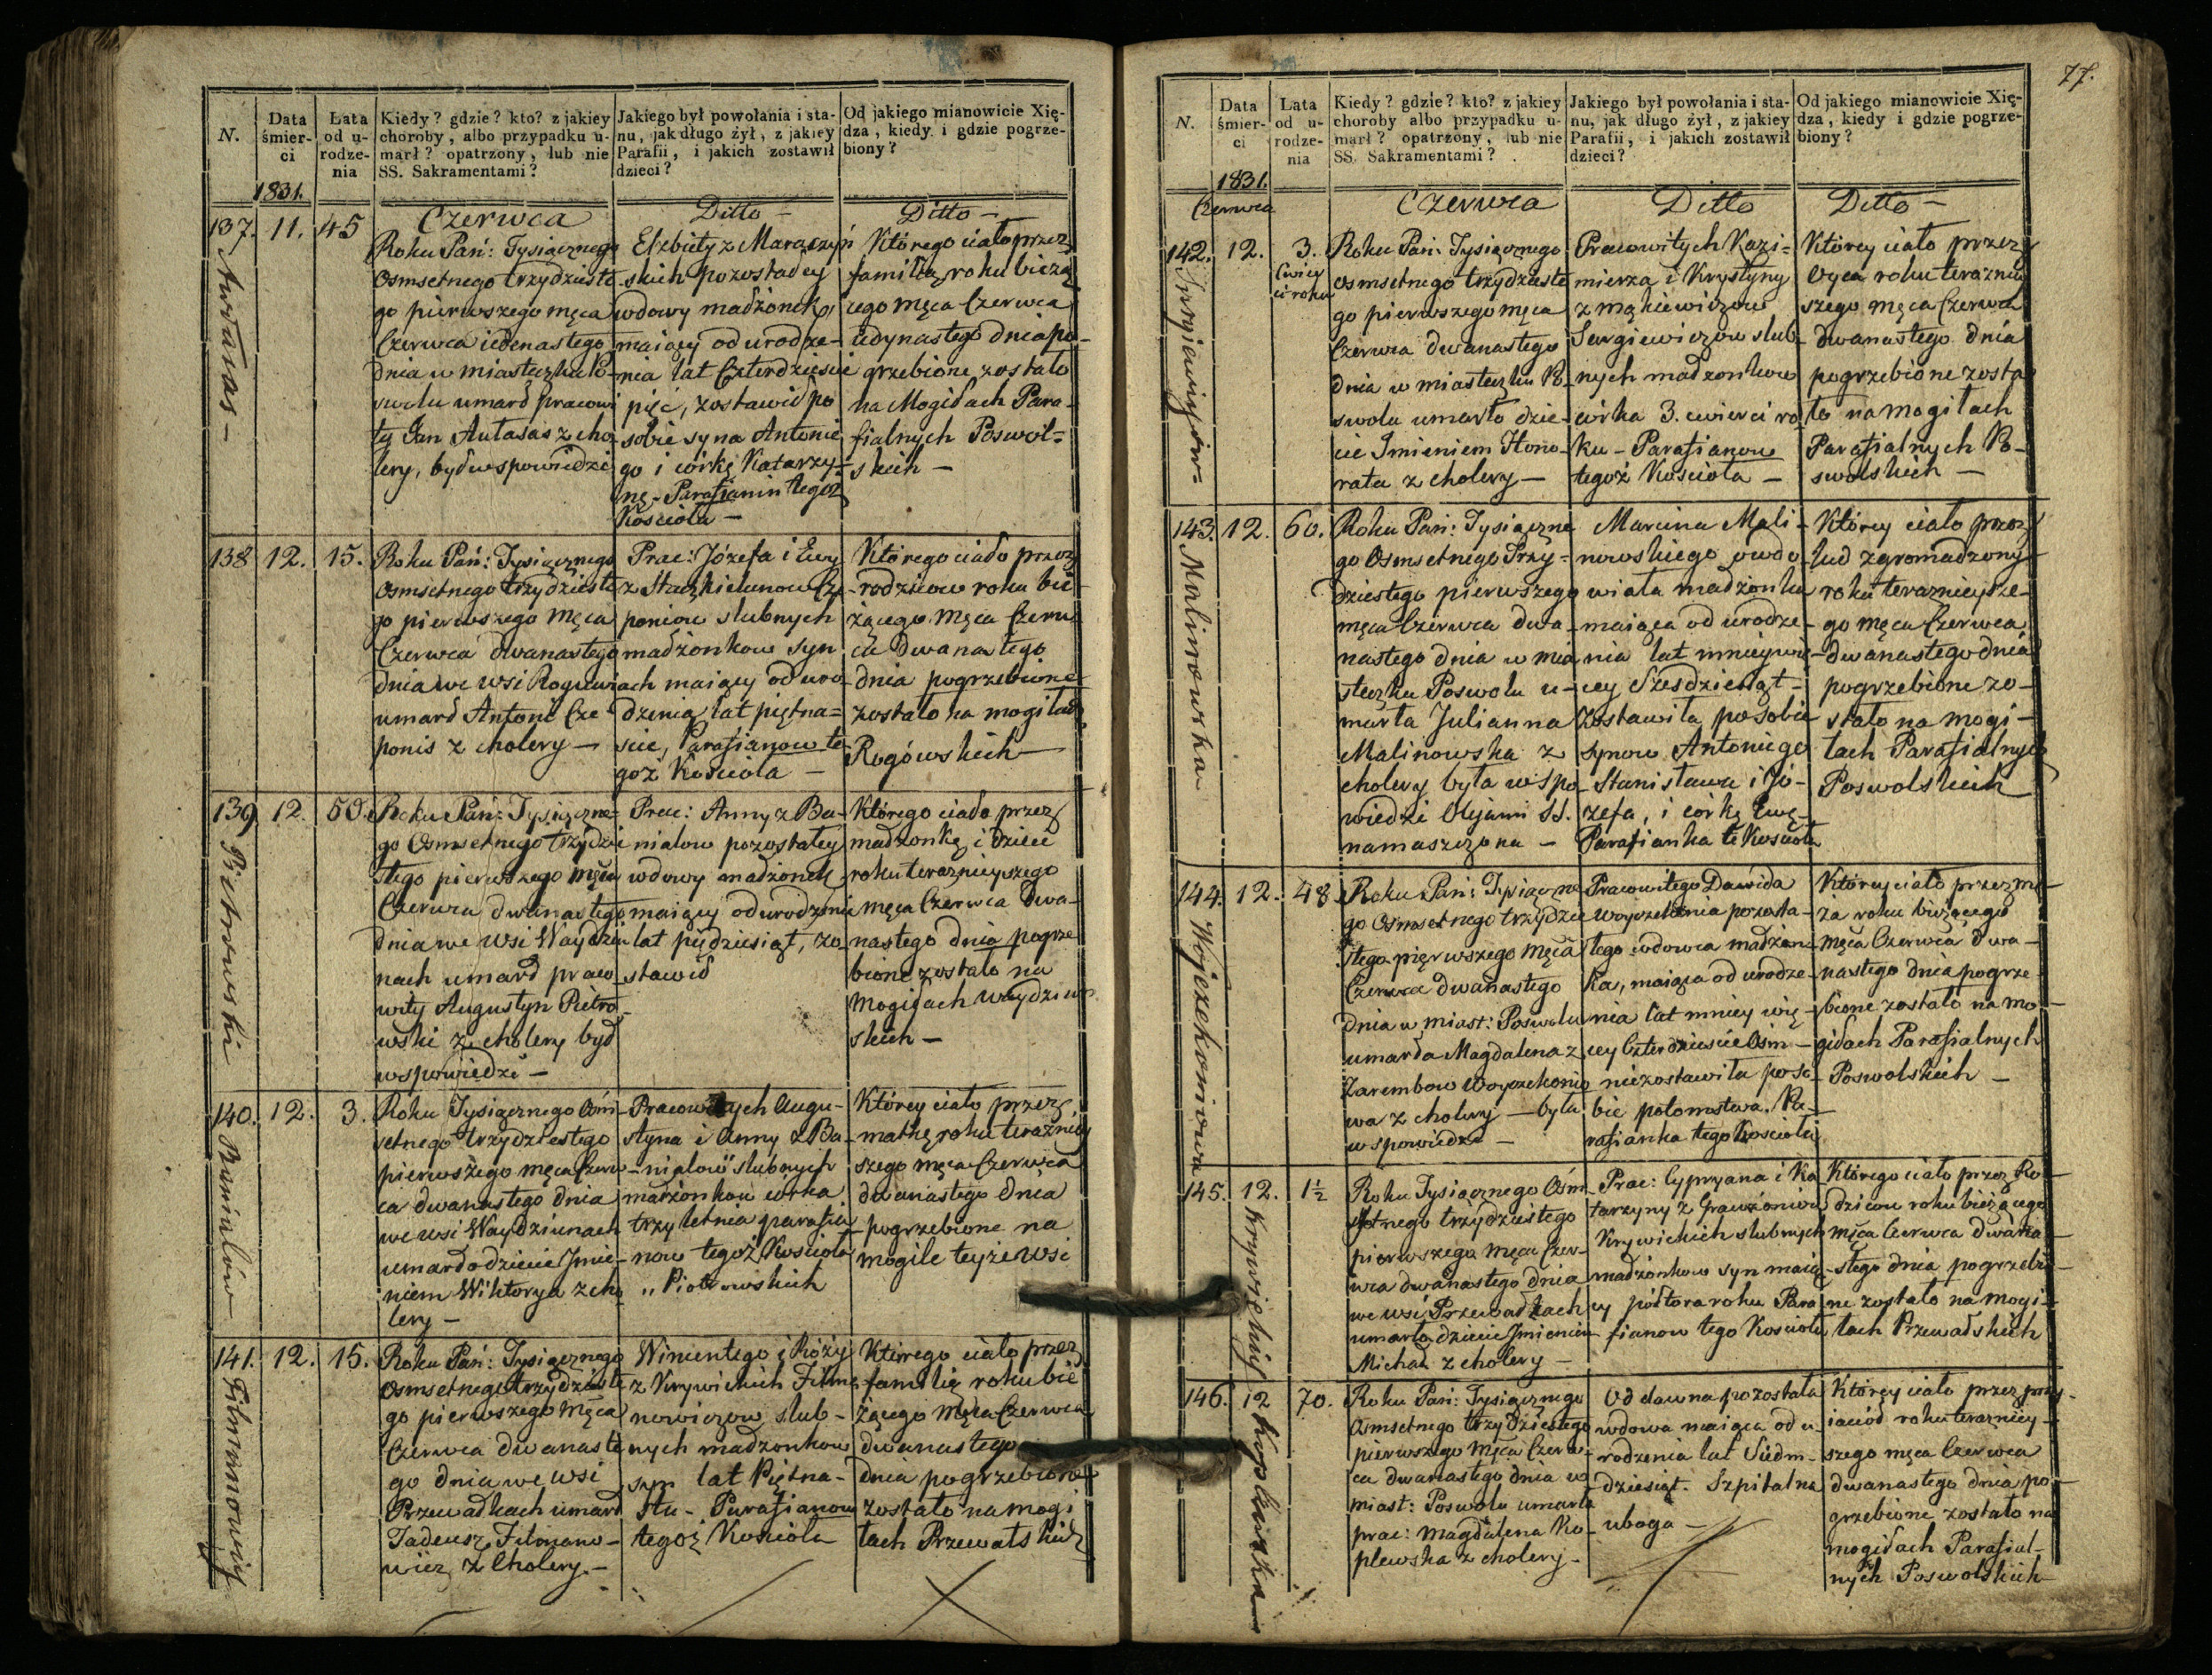 N.
Data śmier-ci
Łata od u-rodze-nia
Kiedy? gdzie? kto? z jakiey
choroby, albo przypadku u-
marł? opatrzony, lub nie
SS. Sakramentami?
Jakiego był powołania i sta-
nu, jak długo żył, z jakiey
Parafii, i jakich zostawił
dzieci?
Od jakiego mianowicie Xię-
dza, kiedy i gdzie pogrze-
biony?
1831.
Czerwca
Ditto –
Ditto –
137. 11. 45
Roku Pań: Tysiącznego
Osmsetnego trzydzieste
go pierwszego męca
Czerwca iedenastego
dnia w miasteczku Po-
swolu umarł pracowi
ty Jan Autasas z cho
lery, był w spowiedzi
Elżbiety z Maraczyń
skich pozostałey
wdowy małżonek,
maiący od urodze-
nia lat Czterdzieści
pięć, zostawił po
sobie syna Antonie
go i córkę Katarzy-
nę – Parafianin tegoż
Kościoła –
Którego ciało przez
familię roku bieżą
cego męca Czerwca
iedynastego dnia po-
grzebione zostało
na Mogiłach Para-
fialnych Poswol=
skich –
138 12. 15.
Roku Pań: Tysiącznego
Osmsetnego trzydzieste
go pierwszego męca
Czerwca dwanastego
dnia we wsi Roguwi
umarł Antoni Cze
ponis z cholery –
Prac: Józefa i Ewy
poniow slubnych
małżonkow syn
ach maiący od uro-
dzenia lat piętna=
scie, Parafianow te
goż Kościoła –
Którego ciało przez
rodzicow roku bie
żącego męca Czerw
ca dwanastego
dnia pogrzebione
zostało na mogiłach
Rogówskich –
139. 12. 50.
Pietrowski
Roku Pań: Tysiączne-
go Osmsetnego trzydzie
stego pierwszego męca
Czerwca dwanastego
dnia we wsi Waydziu
nach umarł praco
wity Augustyn Pietro-
wski z cholery był
w spowiedzi –
Prac: Anny z Ba-
nialow pozostałey
wdowy małżonek
maiący od urodzenia
lat pędziesiąt, zo
stawił
Którego ciało przez
małżonkę i dzieci
roku teraznieyszego
męca Czerwca dwa-
nastego dnia pogrze
bione zostało na
Mogiłach Waydziun
skich –
140. 12. 3.
Roku Tysiącznego Ośm-
setnego trzydziestego
pierwszego męca Czerw-
ca dwanastego dnia
we wsi Waydziunach
umarło dziecie Jmie-
niem Wiktorya z cho
lery –
Pracowitych Augu-
styna i Anny z Ba-
nialow slubnych
małżonkow córka
trzyletnia parafia
now tegoż Kościoła
„ Piotrowskich
Którey ciało przez
matkę roku teraźniey
szego męca Czerwca
dwanastego dnia
pogrzebione na
mogile teyże wsi
141. 12. 15.
Filmanowicz
Roku Pań: Tysiącznego
Osmsetnego trzydzieste
go pierwszego męca
Czerwca dwanaste
go dnia we wsi
Przewałkach umarł
Tadeusz Filmano-
wicz z Cholery. –
Wincentego i Róży
z Krywickich Filma
nowiczow slub-
nych małżonkow
syn lat Piętna-
stu – Parafianow
tegoż Kościoła
Którego ciało przez
familię roku bie
żącego męca Czerwca
dwanastego
dnia pogrzebione
zostało na mogi
łach Przewałskich
77.
N.
Data śmier-ci
Łata od u-rodze-nia
Kiedy? gdzie? kto? z jakiey
choroby albo przypadku u-
marł? opatrzony, lub nie
SS. Sakramentami?
Jakiego był powołania i sta-
nu, jak długo żył, z jakiey
Parafii, i jakich zostawił
dzieci?
Od jakiego mianowicie Xię-
dza, kiedy i gdzie pogrze-
biony?
1831.
Czerwca
Czerwca
Ditto
Ditto –
142. 12. 3.
Roku Pań: Tysiącznego
osmsetnego trzydzieste
go pierwszego męca
Czerwca dwanastego
dnia w miasteczku Po-
swolu umarło dzie-
cie Jmieniem Hono-
rata z cholery –
Pracowitych Kazi-
mierza i Krystyny
Surgiewiczow slub-
nych małzonkow
córka 3. cwierci ro
ku – Parafianow
tegoż Kościoła –
Którey ciało przez
Oyca roku terazniey
szego męca Czerwca
dwanastego dnia
pogrzebione zosta
ło na mogiłach
Parafialnych Po-
swolskich –
143. 12. 60.
Malinowska
Roku Pań: Tysiączne
go Osmsetnego Trzy=
dziestego pierwszego
męca Czerwca dwa-
nastego dnia w mia
steczku Poswolu u-
marła Julianna
Malinowska z
cholery była w spo-
wiedzi Olejami SS.
namaszczona –
Marcina Mali-
nowskiego owdo-
wiała małżonka
maiąca od urodze-
nia lat mniey wię-
cey Szesdziesiąt –
zostawiła po sobie
synow Antoniego
Stanisława i Jó-
zefa, i córkę Ewę –
Parafianka te Kościoła
Którey ciało przez
lud zgromadzony
roku teraznieysze-
go męca Czerwca
dwanastego dnia
pogrzebione zo-
stało na mogi-
łach Parafialnych
Poswolskich
144. 12. 48
Wojczekoniowa
Roku Pań: Tysiączne
go Osmsetnego trzydzie
stego pierwszego męca
Czerwca dwanastego
dnia w miast: Poswolu
umarła Magdalena z
Zarembow Woyczekonio
wa z cholery – była
w spowiedzi –
Pracowitego Dawida
Woyczekonia pozosta-
łego wdowca małżon
ka, maiąca od urodze-
nia lat mniey wię-
cey Czterdzieście Ośm –
niezostawiła po so
bie potomstwa. Pa-
rafianka tego Kościoła
Którey ciało przez mę-
ża roku bieżącego
męca Czerwca dwa-
nastego dnia pogrze
bione zostało na mo-
giłach Parafialnych
Poswolskich –
145. 12. 1½
Roku Tysiącznego Ośm
setnego trzydziestego
pierwszego męca Czer-
wca dwanastego dnia
we wsi Przewałkach
umarło dziecie Jmieniem
Michał z cholery –
Prac: Cypryana i Ka
Krywickich slubnych
małżonkow syn maią
cy półtora roku Para
fianow tego Kościoła
Którego ciało przez Ro-
dzicow roku bieżącego
męca Czerwca dwana-
stego dnia pogrzebio-
ne zostało na mogi-
łach Przewałskich
146. 12 70.
Koplewska
Roku Pań: Tysiącznego
Osmsetnego trzydziestego
pierwszego męca Czerw-
ca dwanastego dnia w
miast: Poswolu umarła
prac: Magdalena Ko-
plewska z cholery –
Od dawna pozostała
wdowa maiąca od u-
rodzenia lat Siedm-
dziesiąt. Szpitalna
uboga –
Którey ciało przez przy-
iaciół roku terazniey-
szego męca Czerwca
dwanastego dnia po-
grzebione zostało na
mogiłach Parafial-
nych Poswolskich